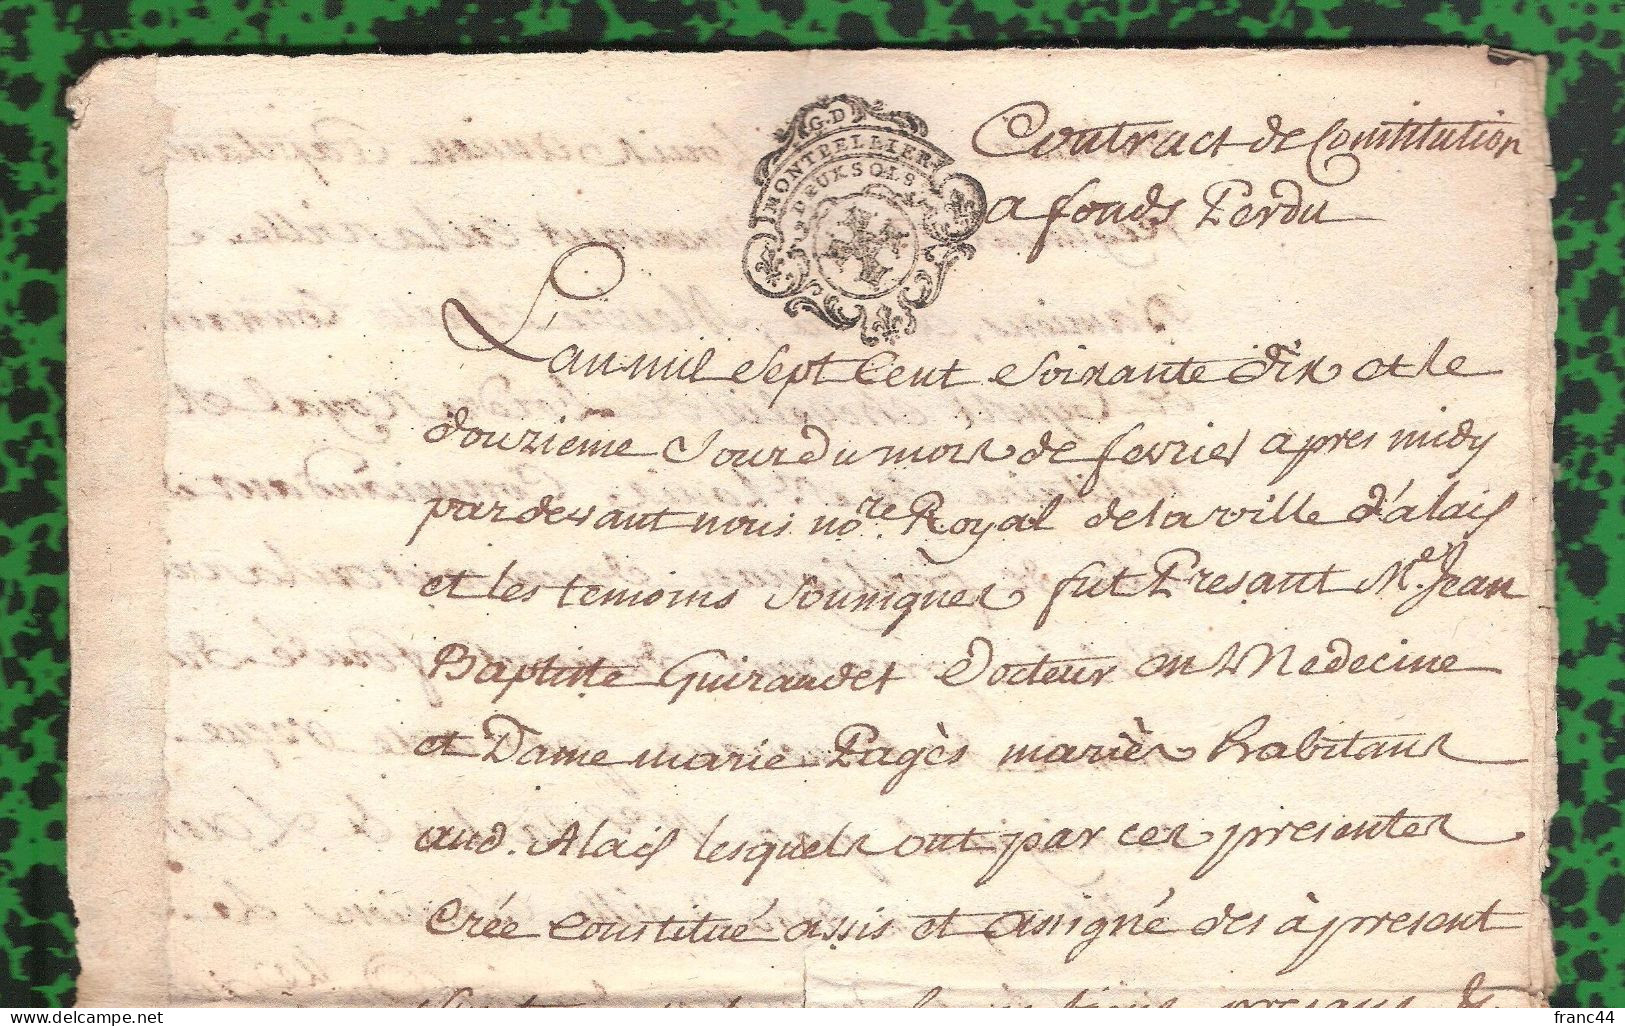 G.D
MONTPELLIER
DEUX SOLS
Contract de Constitution
a fonds Perdu
L'an mil Sept Cent Soixante dix et le
douzieme Jour du mois de fevrier apres midy
pardevant nous no.re Royal de la ville d'alais
et les temoins Sousignes fut Presant M.e Jean
Baptiste Guiraudet Docteur en Medecine
et Dame marie Pagès mariès habitans
aud. Alais lesquels ont par ces presentes
Crée Constitué assis et assigné des à present
delcampe.net
franc44